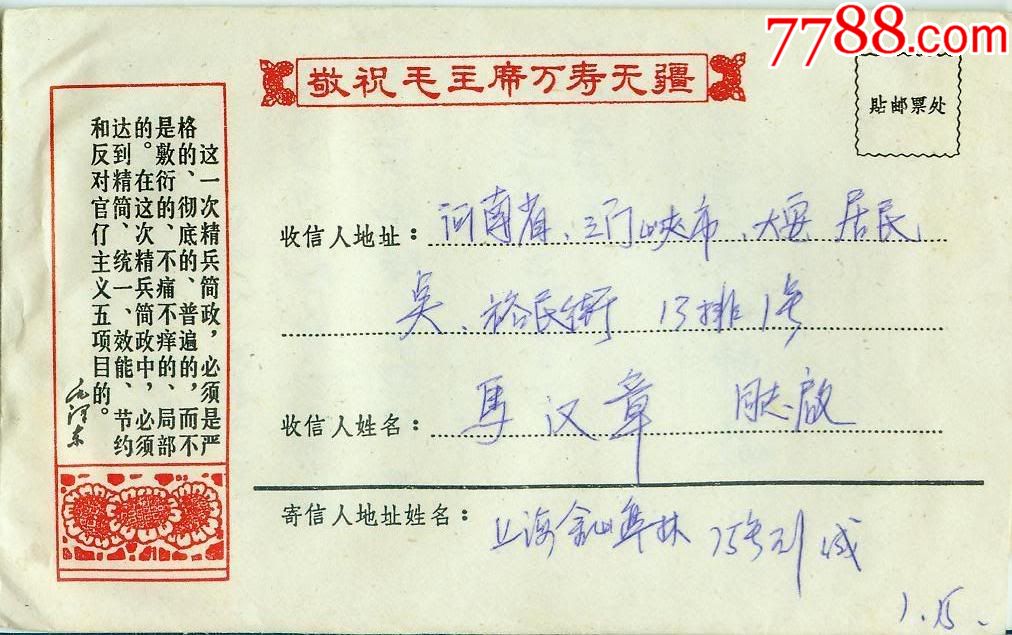 7788.com
敬祝毛主席万寿无疆
贴邮票处
这一次精兵简政，必须是严
格的、彻底的、普遍的，而不
是敷衍的、不痛不痒的、局部
的。在这次精兵简政中，必须
达到精简、统一、效能、节约
和反对官仃主义五项目的。
毛泽东
收信人地址：河南省、三门峡市、大 居民
吴、裕民街 13排1号
收信人姓名：馬汉章 同志啟
寄信人地址姓名：上海金山 林 75号
1.15.